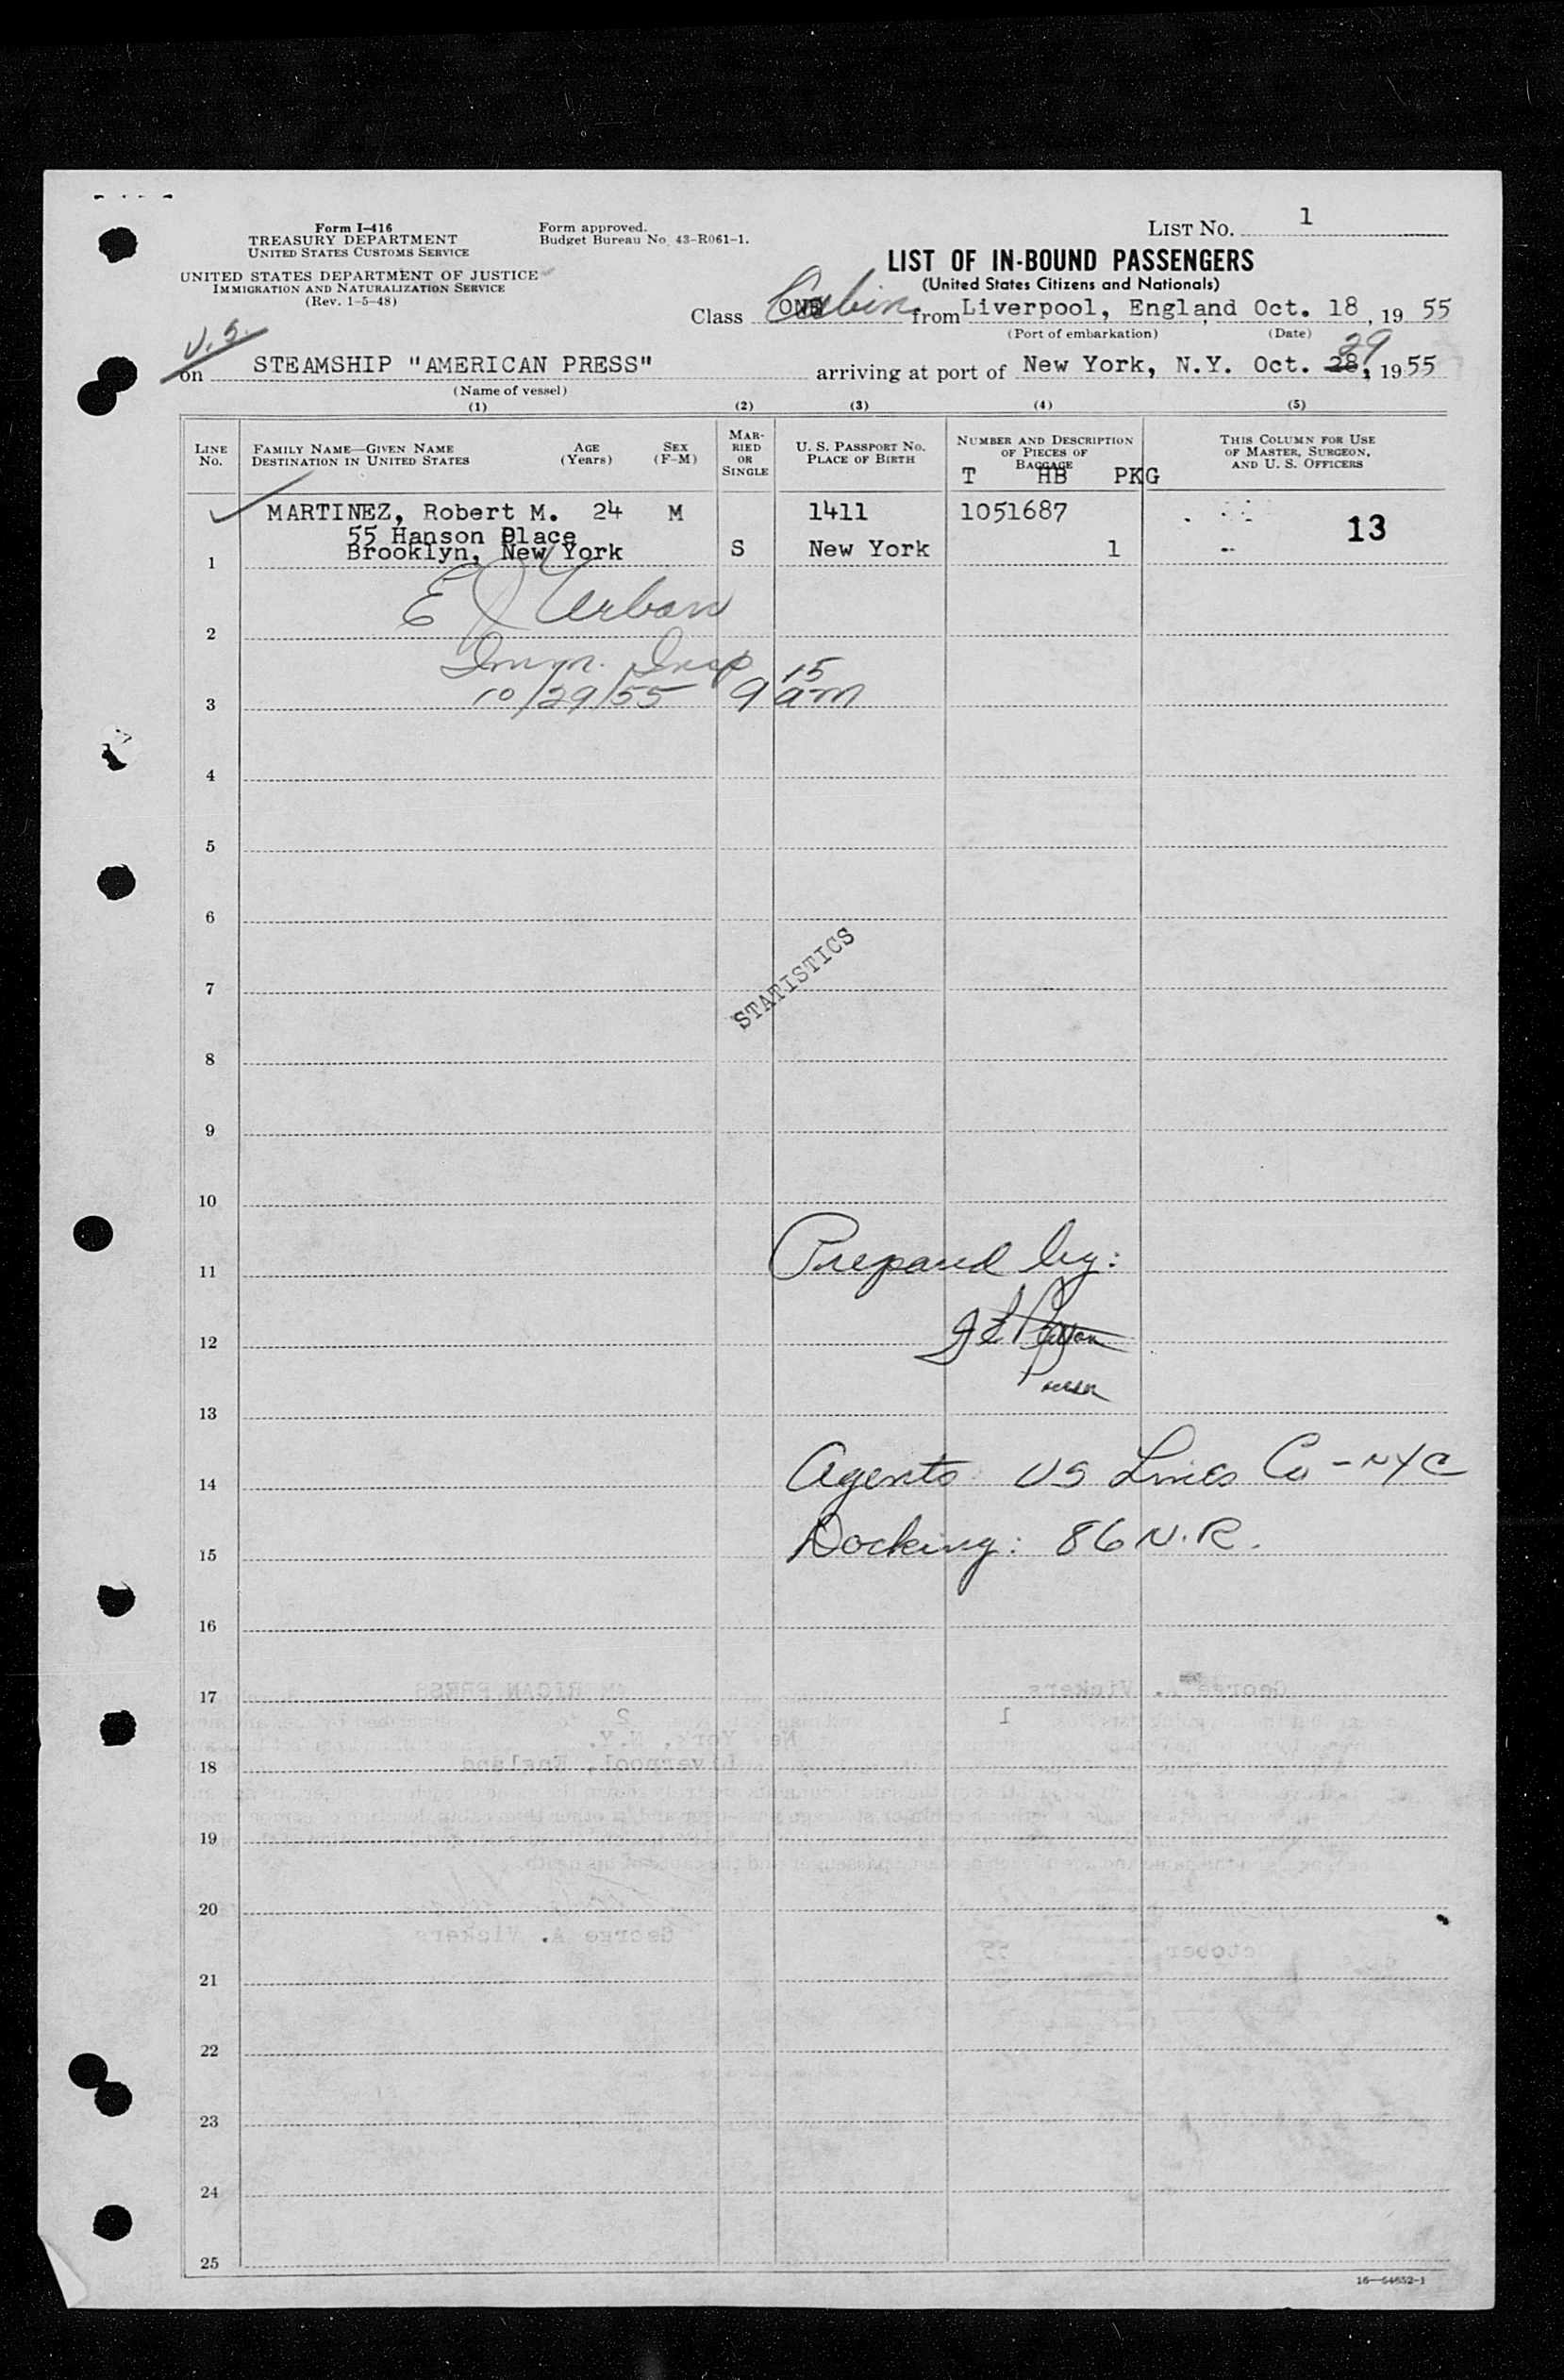 Form I-416
TREASURY DEPARTMENT
UNITED STATES CUSTOMS SERVICE
UNITED STATES DEPARTMENT OF JUSTICE
IMMIGRATION AND NATURALIZATION SERVICE
(Rev. 1-5-48)
Form approved.
Budget Bureau No. 43-R061-1.
LIST NO. 1
LIST OF IN-BOUND PASSENGERS
(United States Citizens and Nationals)
Class ONE Cabin from Liverpool, England, Oct. 18, 19 55
(Port of embarkation) (Date)
U.S.
on STEAMSHIP "AMERICAN PRESS" arriving at port of New York, N.Y. Oct. 28, 29 1955
(Name of vessel)
(1) (2) (3) (4) (5)
LINE NO. FAMILY NAME—GIVEN NAME DESTINATION IN UNITED STATES AGE (Years) SEX (F-M) MARRIED OR SINGLE U. S. PASSPORT NO. PLACE OF BIRTH NUMBER AND DESCRIPTION OF PIECES OF BAGGAGE THIS COLUMN FOR USE OF MASTER, SURGEON, AND U. S. OFFICERS
T HB PKG
MARTINEZ, Robert M. 24 M 1411 1051687 13
55 Hanson Place
1 Brooklyn, New York S New York 1 --
E J Urban
2
Imm. Insp
3 10/29/55 9 15 am
4
5
6
STATISTICS
7
8
9
10
11 Prepared by:
12
Purser
13
14 Agents: US Lines Co - NYC
15 Docking: 86 N.R.
16
17
18
19
20
21
22
23
24
25
16—54652-1